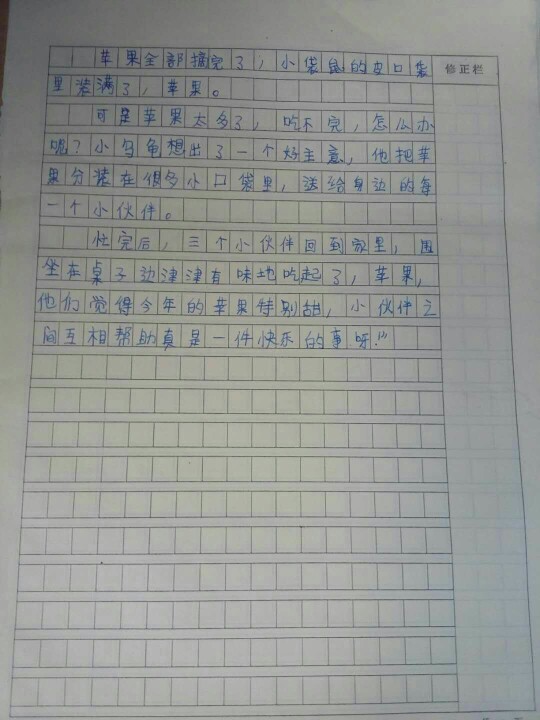 苹果全部摘完了，小袋鼠的皮口袋
修正栏
里装满了，苹果。
可是苹果太多了，吃不完，怎么办
呢？小乌龟想出了一个好主意，他把苹
果分装在很多小口袋里，送给身边的每
一个小伙伴。
忙完后，三个小伙伴回到家里，围
坐在桌子边津津有味地吃起了，苹果，
他们觉得今年的苹果特别甜，小伙伴之
间互相帮助真是一件快乐的事呀！”